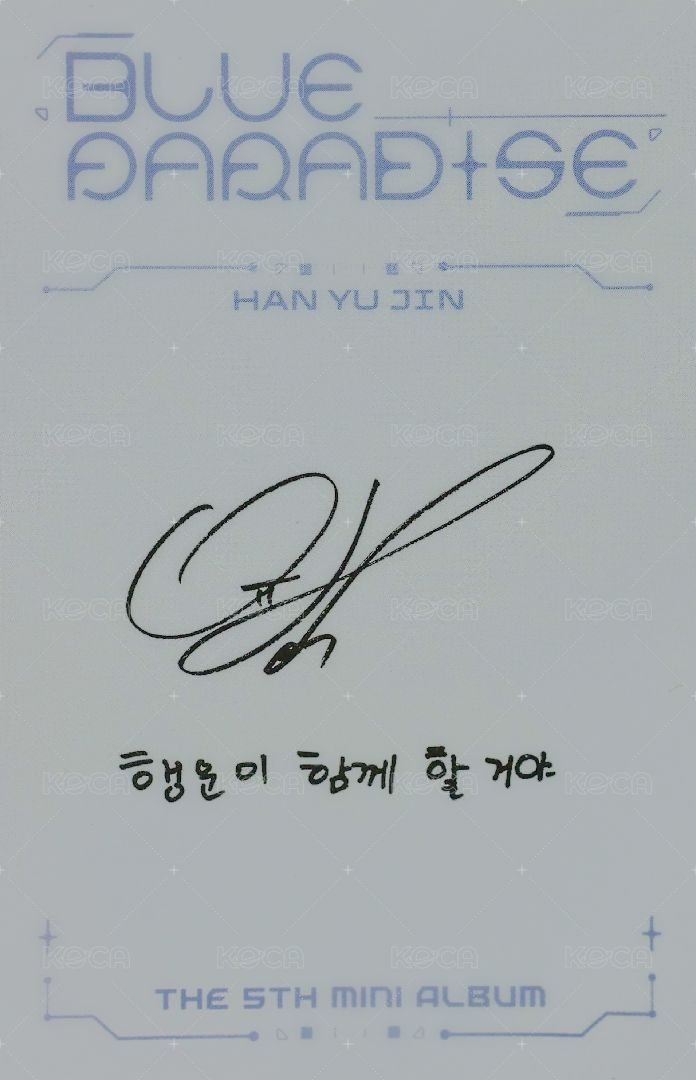 BLUE
PARADISE
HAN YU JIN
행운이 함께 할 거야
THE 5TH MINI ALBUM
KOCA